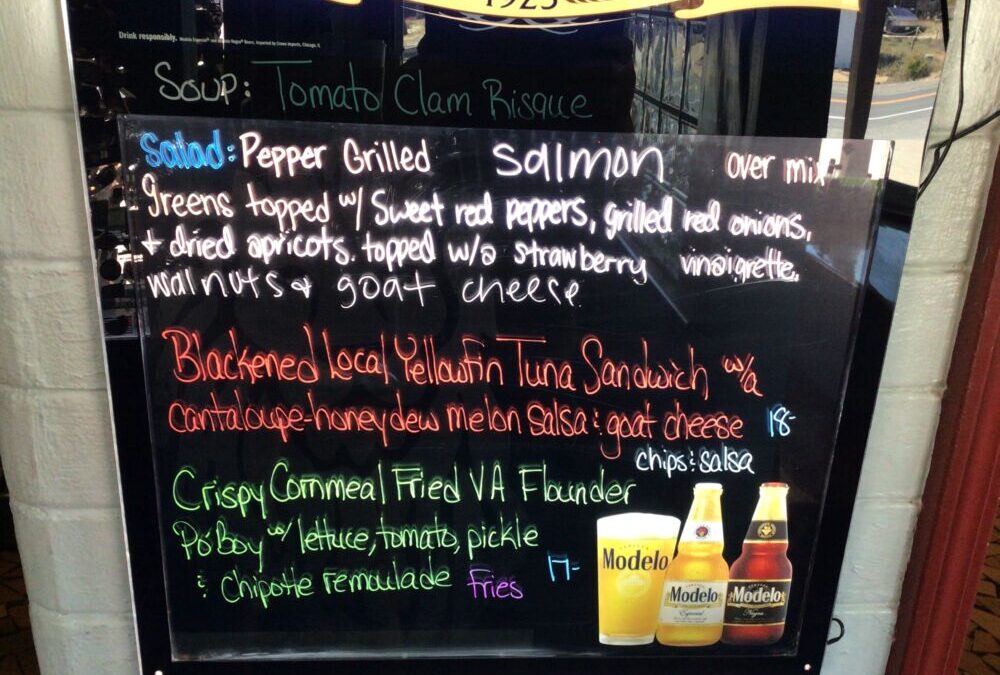 1925
Drink responsibly. Modelo Especial® and Modelo Negra® Beers. Imported by Crown Imports, Chicago, IL
Soup: Tomato Clam Bisque
Salad: Pepper Grilled Salmon over mix
greens topped w/ sweet red peppers, grilled red onions,
+ dried apricots. topped w/a strawberry vinaigrette,
walnuts & goat cheese
Blackened Local Yellowfin Tuna Sandwich w/a
cantaloupe-honeydew melon salsa & goat cheese 18-
chips & salsa
Crispy Cornmeal Fried VA Flounder
Po'Boy w/ lettuce, tomato, pickle
& Chipotle remoulade Fries 17-
Modelo
Modelo
Especial
Modelo
Negra